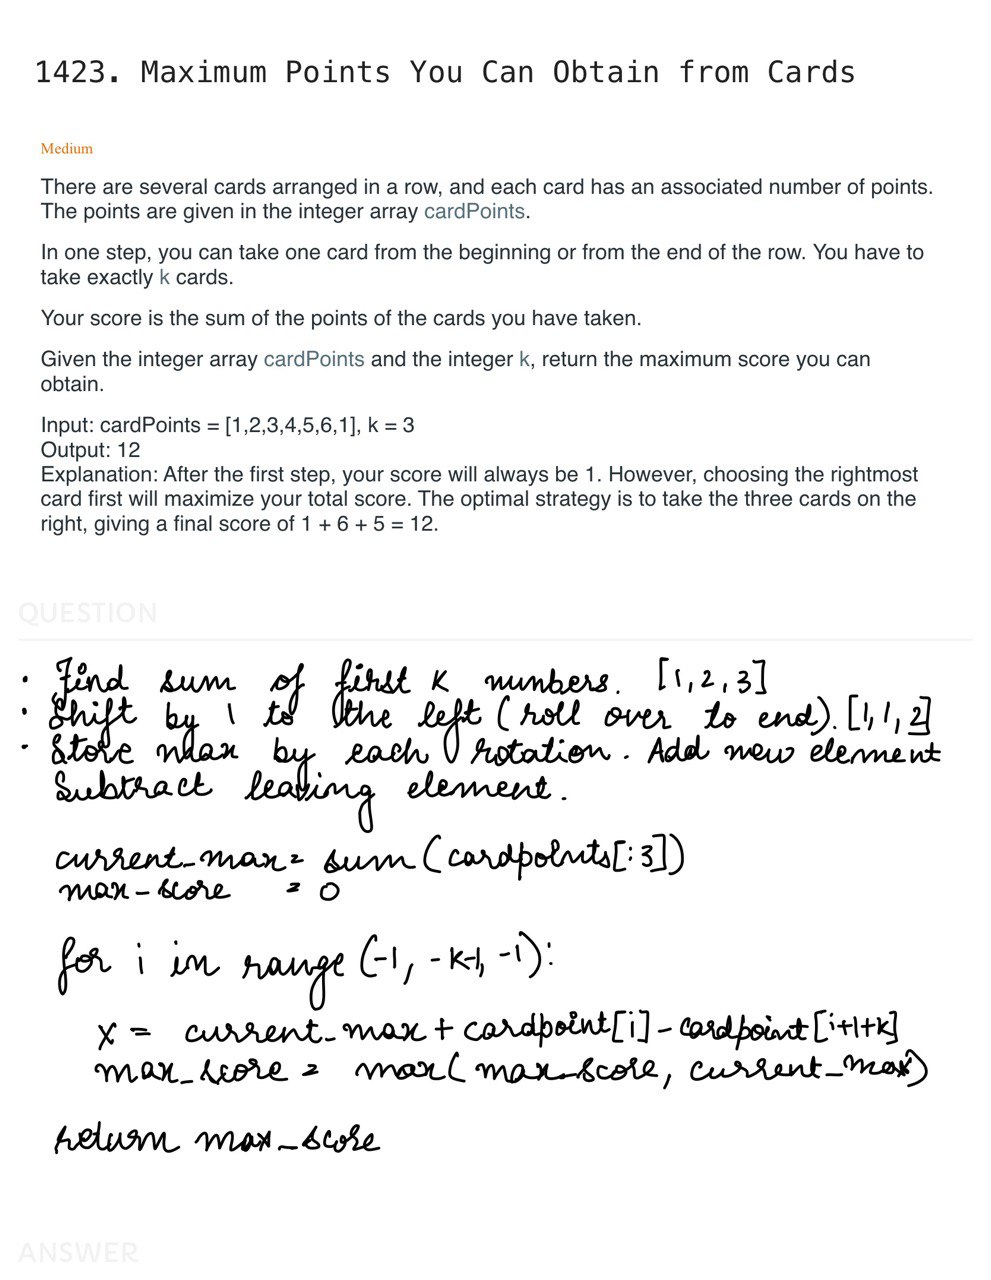 1423. Maximum Points You Can Obtain from Cards
Medium
There are several cards arranged in a row, and each card has an associated number of points.
The points are given in the integer array cardPoints.
In one step, you can take one card from the beginning or from the end of the row. You have to
take exactly k cards.
Your score is the sum of the points of the cards you have taken.
Given the integer array cardPoints and the integer k, return the maximum score you can
obtain.
Input: cardPoints = [1,2,3,4,5,6,1], k = 3
Output: 12
Explanation: After the first step, your score will always be 1. However, choosing the rightmost
card first will maximize your total score. The optimal strategy is to take the three cards on the
right, giving a final score of 1 + 6 + 5 = 12.
QUESTION
· Find sum of first K numbers. [1,2,3]
· Shift by 1 to the left (roll over to end). [1,1,2]
· Store max by each rotation. Add new element
Subtract leaving element.
current_max = sum(cardpoints[:3])
max_score = 0
for i in range (-1, -k-1, -1):
x = current_max + cardpoint[i] - cardpoint[i+1+k]
max_score = max(max_score, current_max)
return max_score
ANSWER